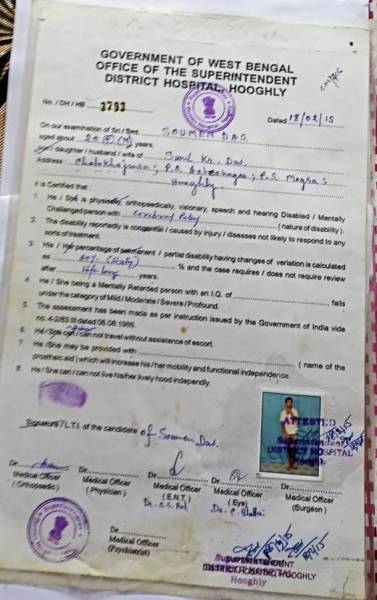 GOVERNMENT OF WEST BENGAL
OFFICE OF THE SUPERINTENDENT
DISTRICT HOSPITAL, HOOGHLY
No. / DH / HB 3793 Dated 18/02/15
On our examination of Sri / Smt. SOUMEN DAS.
aged about 20 (M) years.
son / daughter / husband / wife of Sunil Kr. Das.
Address P.O. P.S. Mogra;
Hooghly
It is Certified that
1. He / She a physically, orthopaedically, visionary, speech and hearing Disabled / Mentally
Challenged person with Cerebral Palsy (nature of disability).
2. The disability reportedly is congenital / caused by injury / diseases not likely to respond to any
sorts of treatment.
3. His / Her percentage of permanent / partial disability having changes of variation is calculated
as 60% (Sixty) % and the case requires / does not require review
after life long years.
4. He / She being a Mentally Retarded person with an I.Q. of falls
under the category of Mild / Moderate / Severe / Profound.
5. The assessment has been made as per instruction issued by the Government of India vide
no. 4-2/83 III dated 06.08.1986.
6. He / She can / can not travel without assistance of escort.
7. He /She may be provided with ( name of the
prosthetic aid ) which will increase his / her mobility and functional independence.
8. He / She can / can not live his/her lively hood independly.
ATTESTED
Superintendent
DISTRICT HOSPITAL
Hooghly
Signature / L.T.I. of the candidate of Soumen Das.
Dr. Dr. Dr. Dr. Dr.
Medical Officer Medical Officer Medical Officer Medical Officer Medical Officer
( Orthopaedic ) ( Physician ) ( E.N.T. ) ( Eye ) ( Surgeon )
Dr.
Medical Officer
(Psychiatrist)
SUPERINTENDENT
DISTRICT HOSPITAL, HOOGHLY
Hooghly